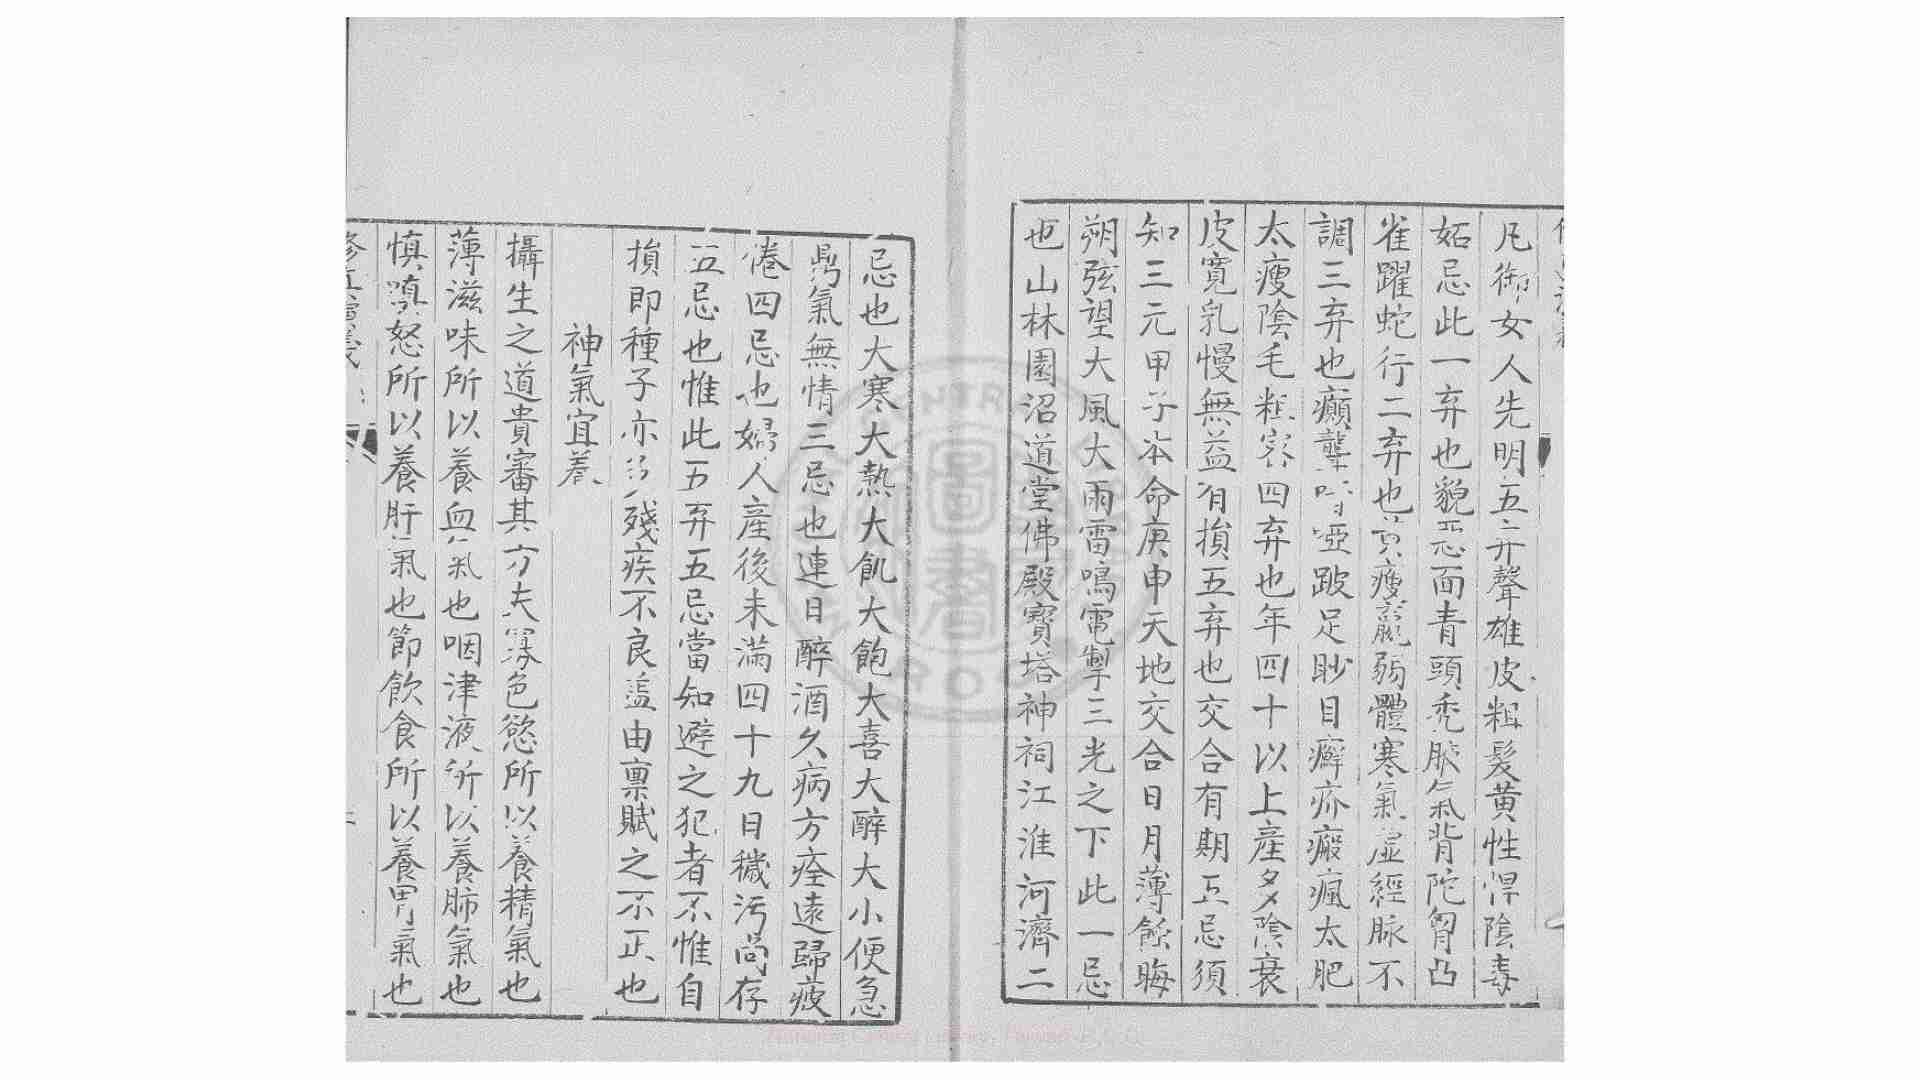 凡御女人先明五弃聲雄皮粗髮黄性悍陰毒
妬忌此一弃也貌惡面青頭禿腋氣背陀胷凸
雀躍蛇行二弃也黄瘦羸弱體寒氣虚經脉不
調三弃也癲聾啞跛足眇目癬疥癜瘋太肥
太瘦陰毛粗密四弃也年四十以上產多陰衰
皮寬乳慢無益有損五弃也交合有期五忌須
知三元甲子本命庚申天地交合日月薄餘晦
朔弦望大風大雨雷鳴電掣三光之下此一忌
也山林園沼道堂佛殿寳塔神祠江淮河濟二
忌也大寒大熱大飢大飽大喜大醉大小便急
氣無情三忌也連日醉酒久病方痊遠歸疲
倦四忌也婦人產後未滿四十九日穢污尚存
五忌也惟此五弃五忌當知避之犯者不惟自
損即種子亦多殘疾不良盖由禀賦之不正也
神氣宜養
攝生之道貴審其方夫寡色慾所以養精氣也
薄滋味所以養血氣也咽津液所以養肺氣也
慎嗔怒所以養肝氣也節飲食所以養胃氣也